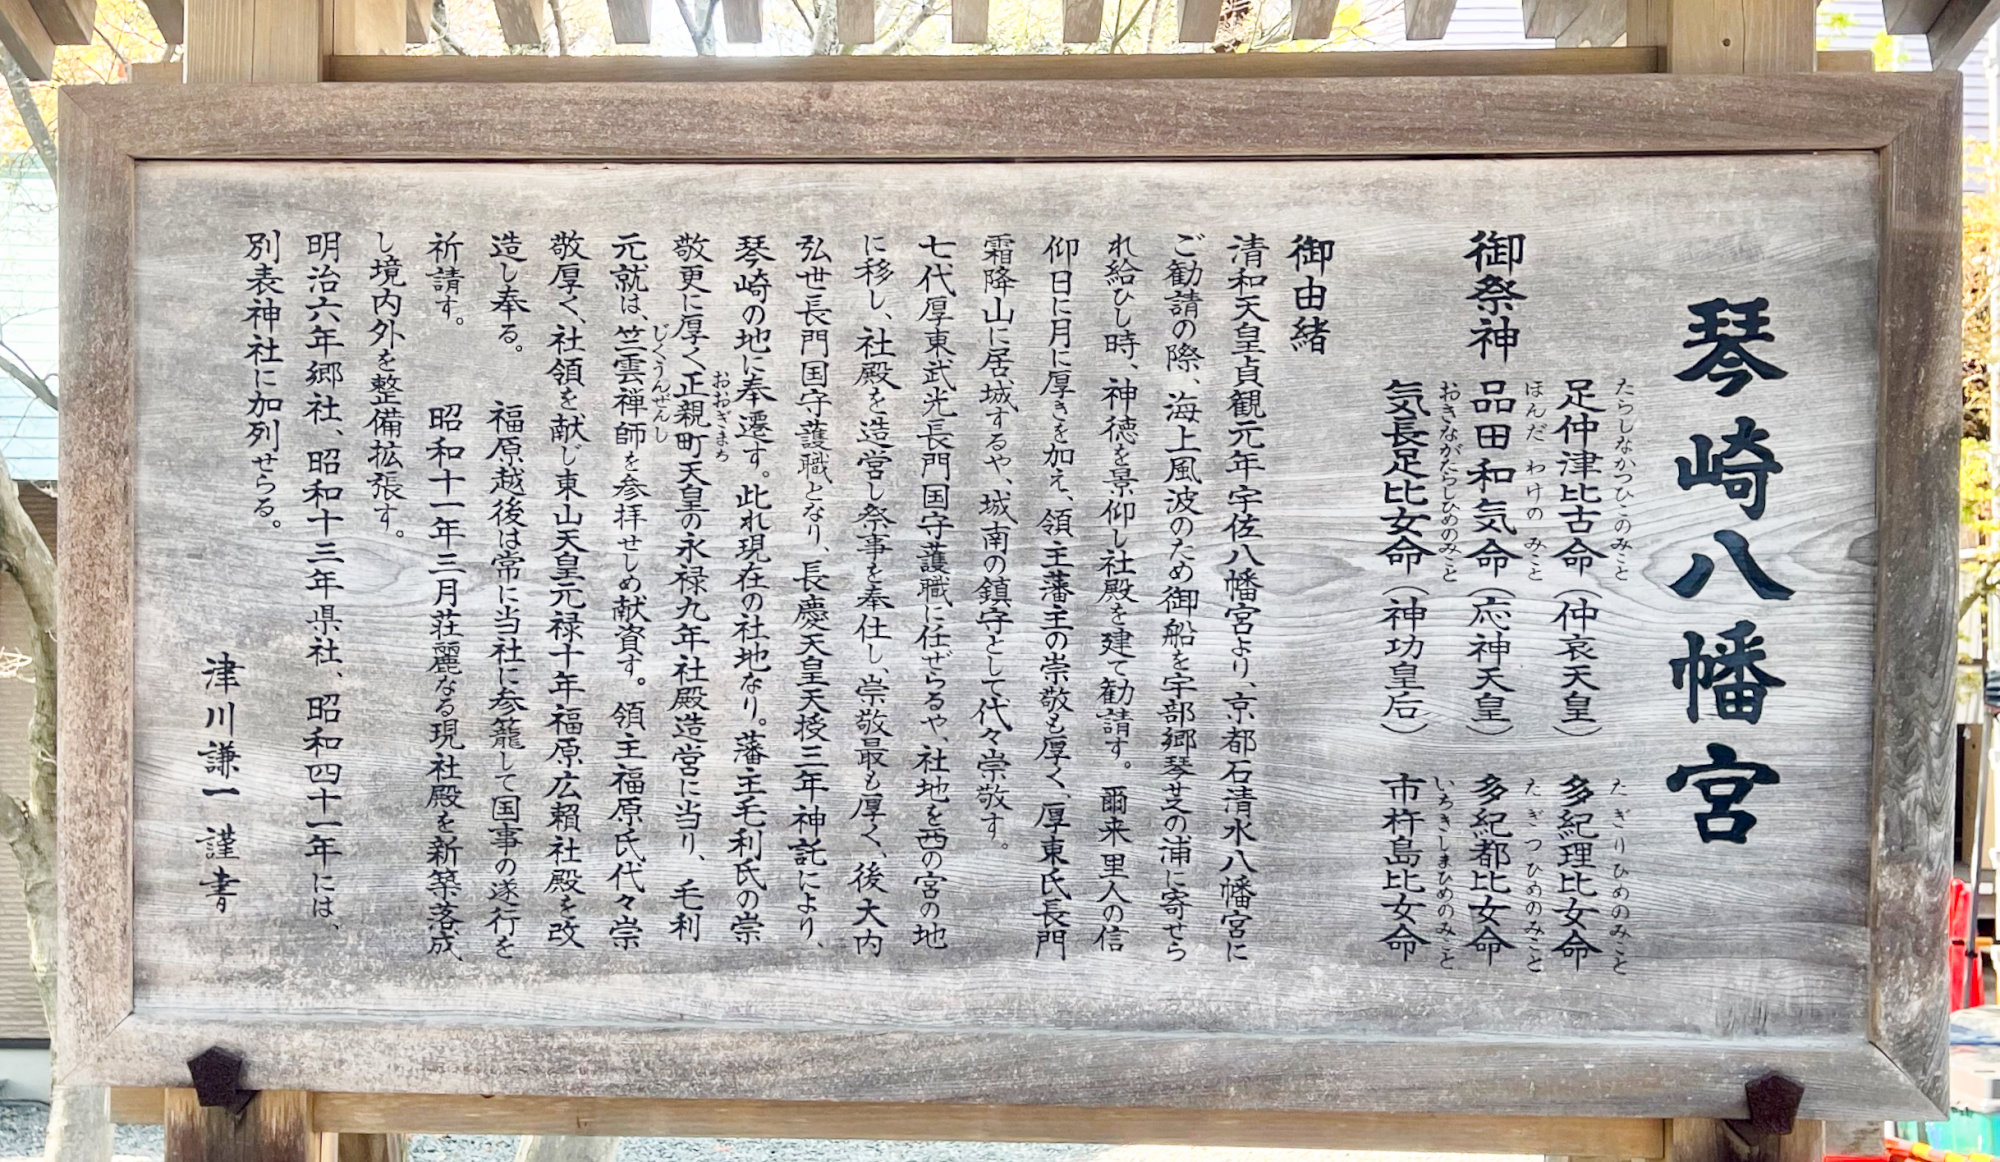 琴崎八幡宮
御祭神
足仲津比古命（仲哀天皇）
たらしなかつひこのみこと
多紀理比女命
たぎりひめのみこと
品田和気命（応神天皇）
ほんだ わけの みこと
多紀都比女命
たぎつひめのみこと
気長足比女命（神功皇后）
おきながたらしひめのみこと
市杵島比女命
いちきしまひめのみこと
御由緒
清和天皇貞観元年宇佐八幡宮より、京都石清水八幡宮に
ご勧請の際、海上風波のため御船を宇部郷琴芝の浦に寄せら
れ給ひし時、神徳を景仰し社殿を建て勧請す。爾来里人の信
仰日に月に厚きを加え、領主藩主の崇敬も厚く、厚東氏長門
霜降山に居城するや、城南の鎮守として代々崇敬す。
七代厚東武光長門国守護職に任ぜらるや、社地を西の宮の地
に移し、社殿を造営し祭事を奉仕し、崇敬最も厚く、後大内
弘世長門国守護職となり、長慶天皇天授三年神託により、
琴崎の地に奉遷す。此れ現在の社地なり。藩主毛利氏の崇
敬更に厚く正親町天皇の永禄九年社殿造営に当り、毛利
おおぎまち
元就は、竺雲禅師を参拝せしめ献資す。領主福原氏代々崇
じくうんぜんし
敬厚く、社領を献じ東山天皇元禄十年福原広賴社殿を改
造し奉る。 福原越後は常に当社に参籠して国事の遂行を
祈請す。 昭和十一年三月荘麗なる現社殿を新築落成
し境内外を整備拡張す。
明治六年郷社、昭和十三年県社、昭和四十一年には、
別表神社に加列せらる。
津川謙一 謹書